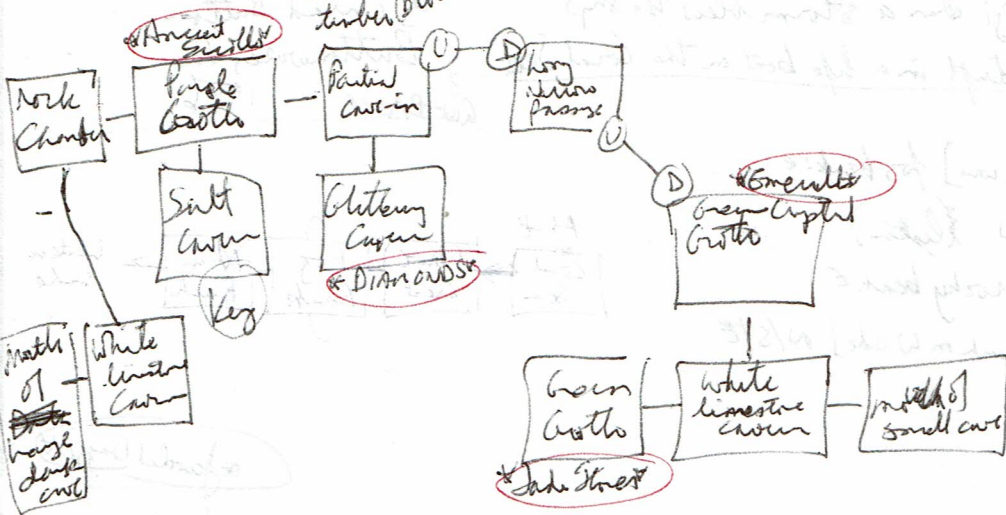 *Ancient
Scrolls*
timber
U
D
Rock
Chamber
Purple
Grotto
Partial
cave-in
Long
narrow
passage
U
D
*Emeralds*
Green Crystal
Grotto
Salt
Cavern
Key
Glittering
Cavern
*DIAMONDS*
Mouth
of
huge
dark
cave
White
limestone
Cavern
Green
Grotto
*Jade Stones*
White
limestone
cavern
mouth of
small cave